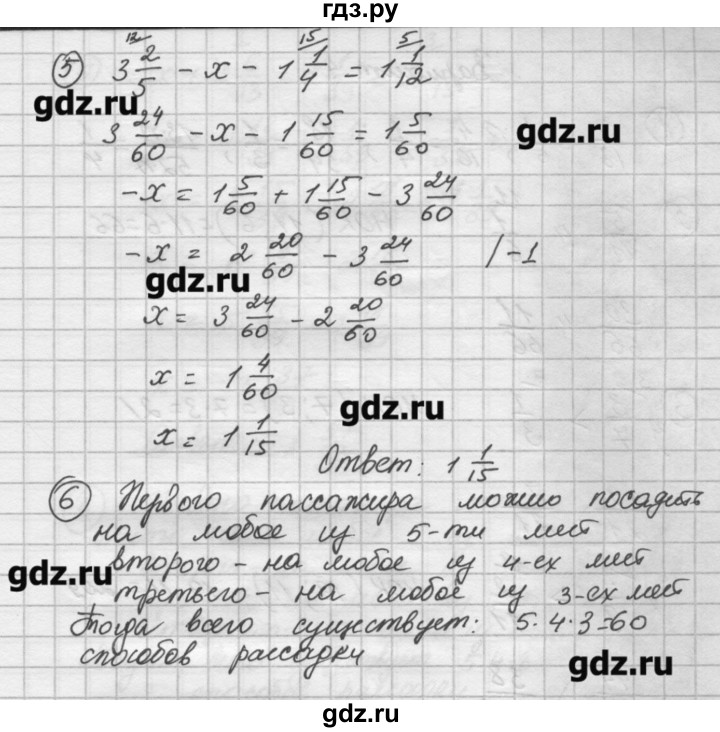 гдз.ру
12 15 5
5 3 2/5 - x - 1 1/4 = 1 1/12
gdz.ru
3 24/60 - x - 1 15/60 = 1 5/60
gdz.ru
-x = 1 5/60 + 1 15/60 - 3 24/60
-x = 2 20/60 - 3 24/60 /-1
gdz.ru
x = 3 24/60 - 2 20/60
x = 1 4/60
gdz.ru
x = 1 1/15
Ответ: 1 1/15
6 Первого пассажира можно посадить
на любое из 5-ти мест
второго - на любое из 4-ех мест
gdz.ru
третьего - на любое из 3-ех мест
Тогда всего существует: 5·4·3=60
способов рассадки
gdz.ru
gdz.ru